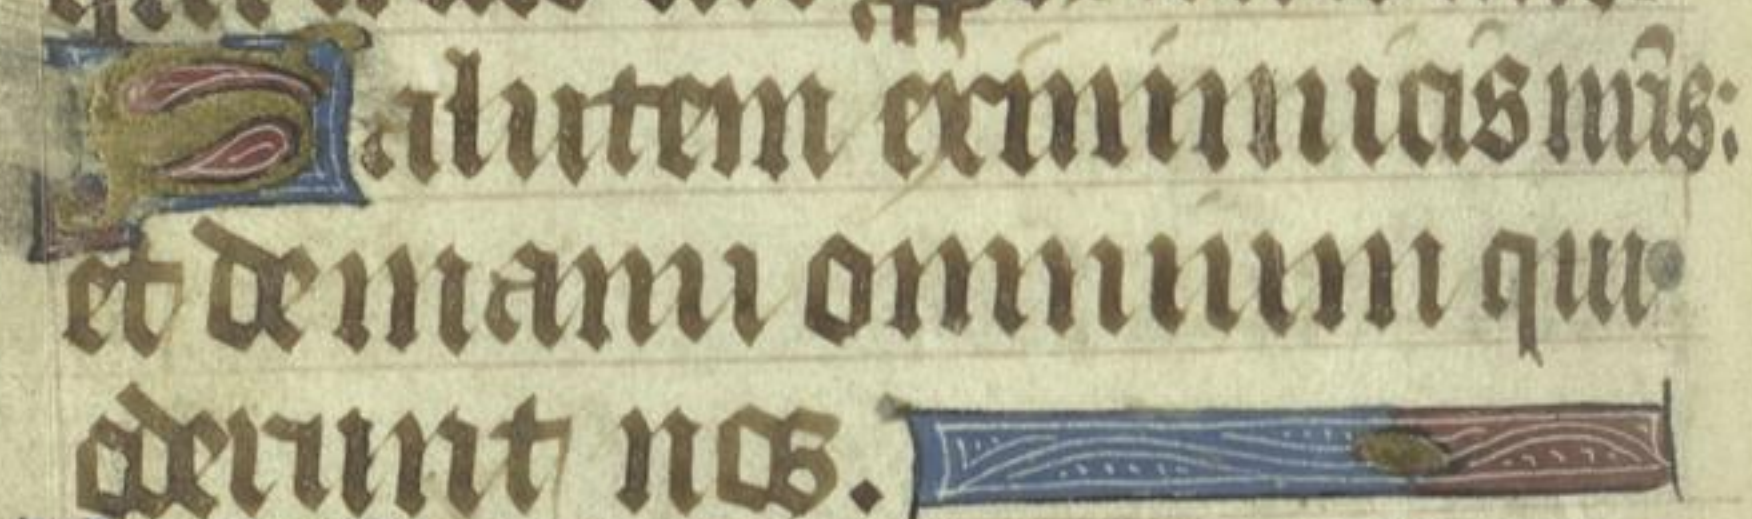 Salutem ex inimicis nr̄is:
et de manu omnium qui
oderunt nos.